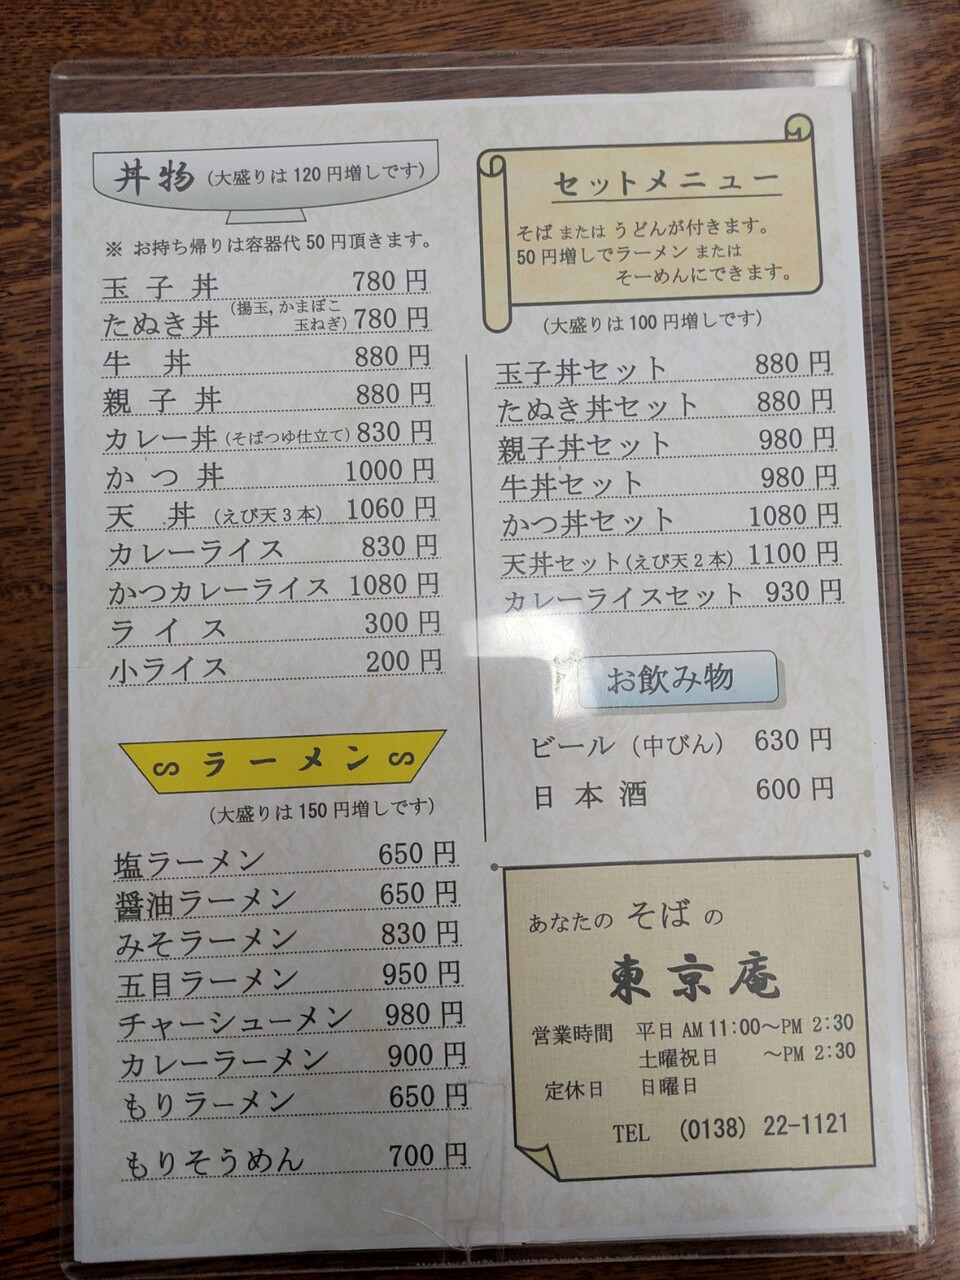 丼物 (大盛りは120円増しです)
※ お持ち帰りは容器代50円頂きます。
玉子丼 780円
たぬき丼 (揚玉,かまぼこ 玉ねぎ) 780円
牛丼 880円
親子丼 880円
カレー丼 (そばつゆ仕立て) 830円
かつ丼 1000円
天丼 (えび天3本) 1060円
カレーライス 830円
かつカレーライス 1080円
ライス 300円
小ライス 200円
ラーメン
(大盛りは150円増しです)
塩ラーメン 650円
醤油ラーメン 650円
みそラーメン 830円
五目ラーメン 950円
チャーシューメン 980円
カレーラーメン 900円
もりラーメン 650円
もりそうめん 700円
セットメニュー
そば または うどんが付きます。
50円増しでラーメン または
そーめんにできます。
(大盛りは100円増しです)
玉子丼セット 880円
たぬき丼セット 880円
親子丼セット 980円
牛丼セット 980円
かつ丼セット 1080円
天丼セット(えび天2本) 1100円
カレーライスセット 930円
お飲み物
ビール (中びん) 630円
日本酒 600円
あなたの そば の
東京庵
営業時間 平日 AM11:00～PM 2:30
土曜祝日 ～PM 2:30
定休日 日曜日
TEL (0138) 22-1121